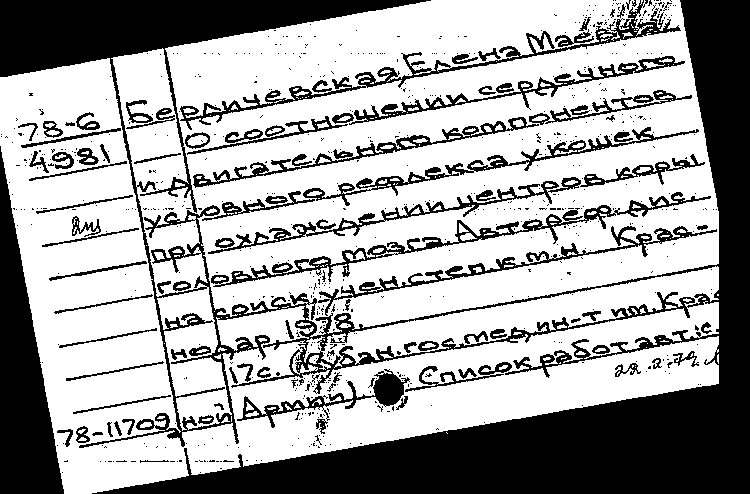 Бердичевская, Елена Маевна.
78-6 О соотношении сердечного
4981 и двигательного компонентов
условного рефлекса у кошек
при охлаждении центров коры
головного мозга. Автореф. дис.
на соиск. учен. степ. к.м.н. Крас-
нодар, 1978.
17с. (Кубан. гос. мед. ин-т им. Крас
78-11709 ной Армии) Список работ авт.: с.